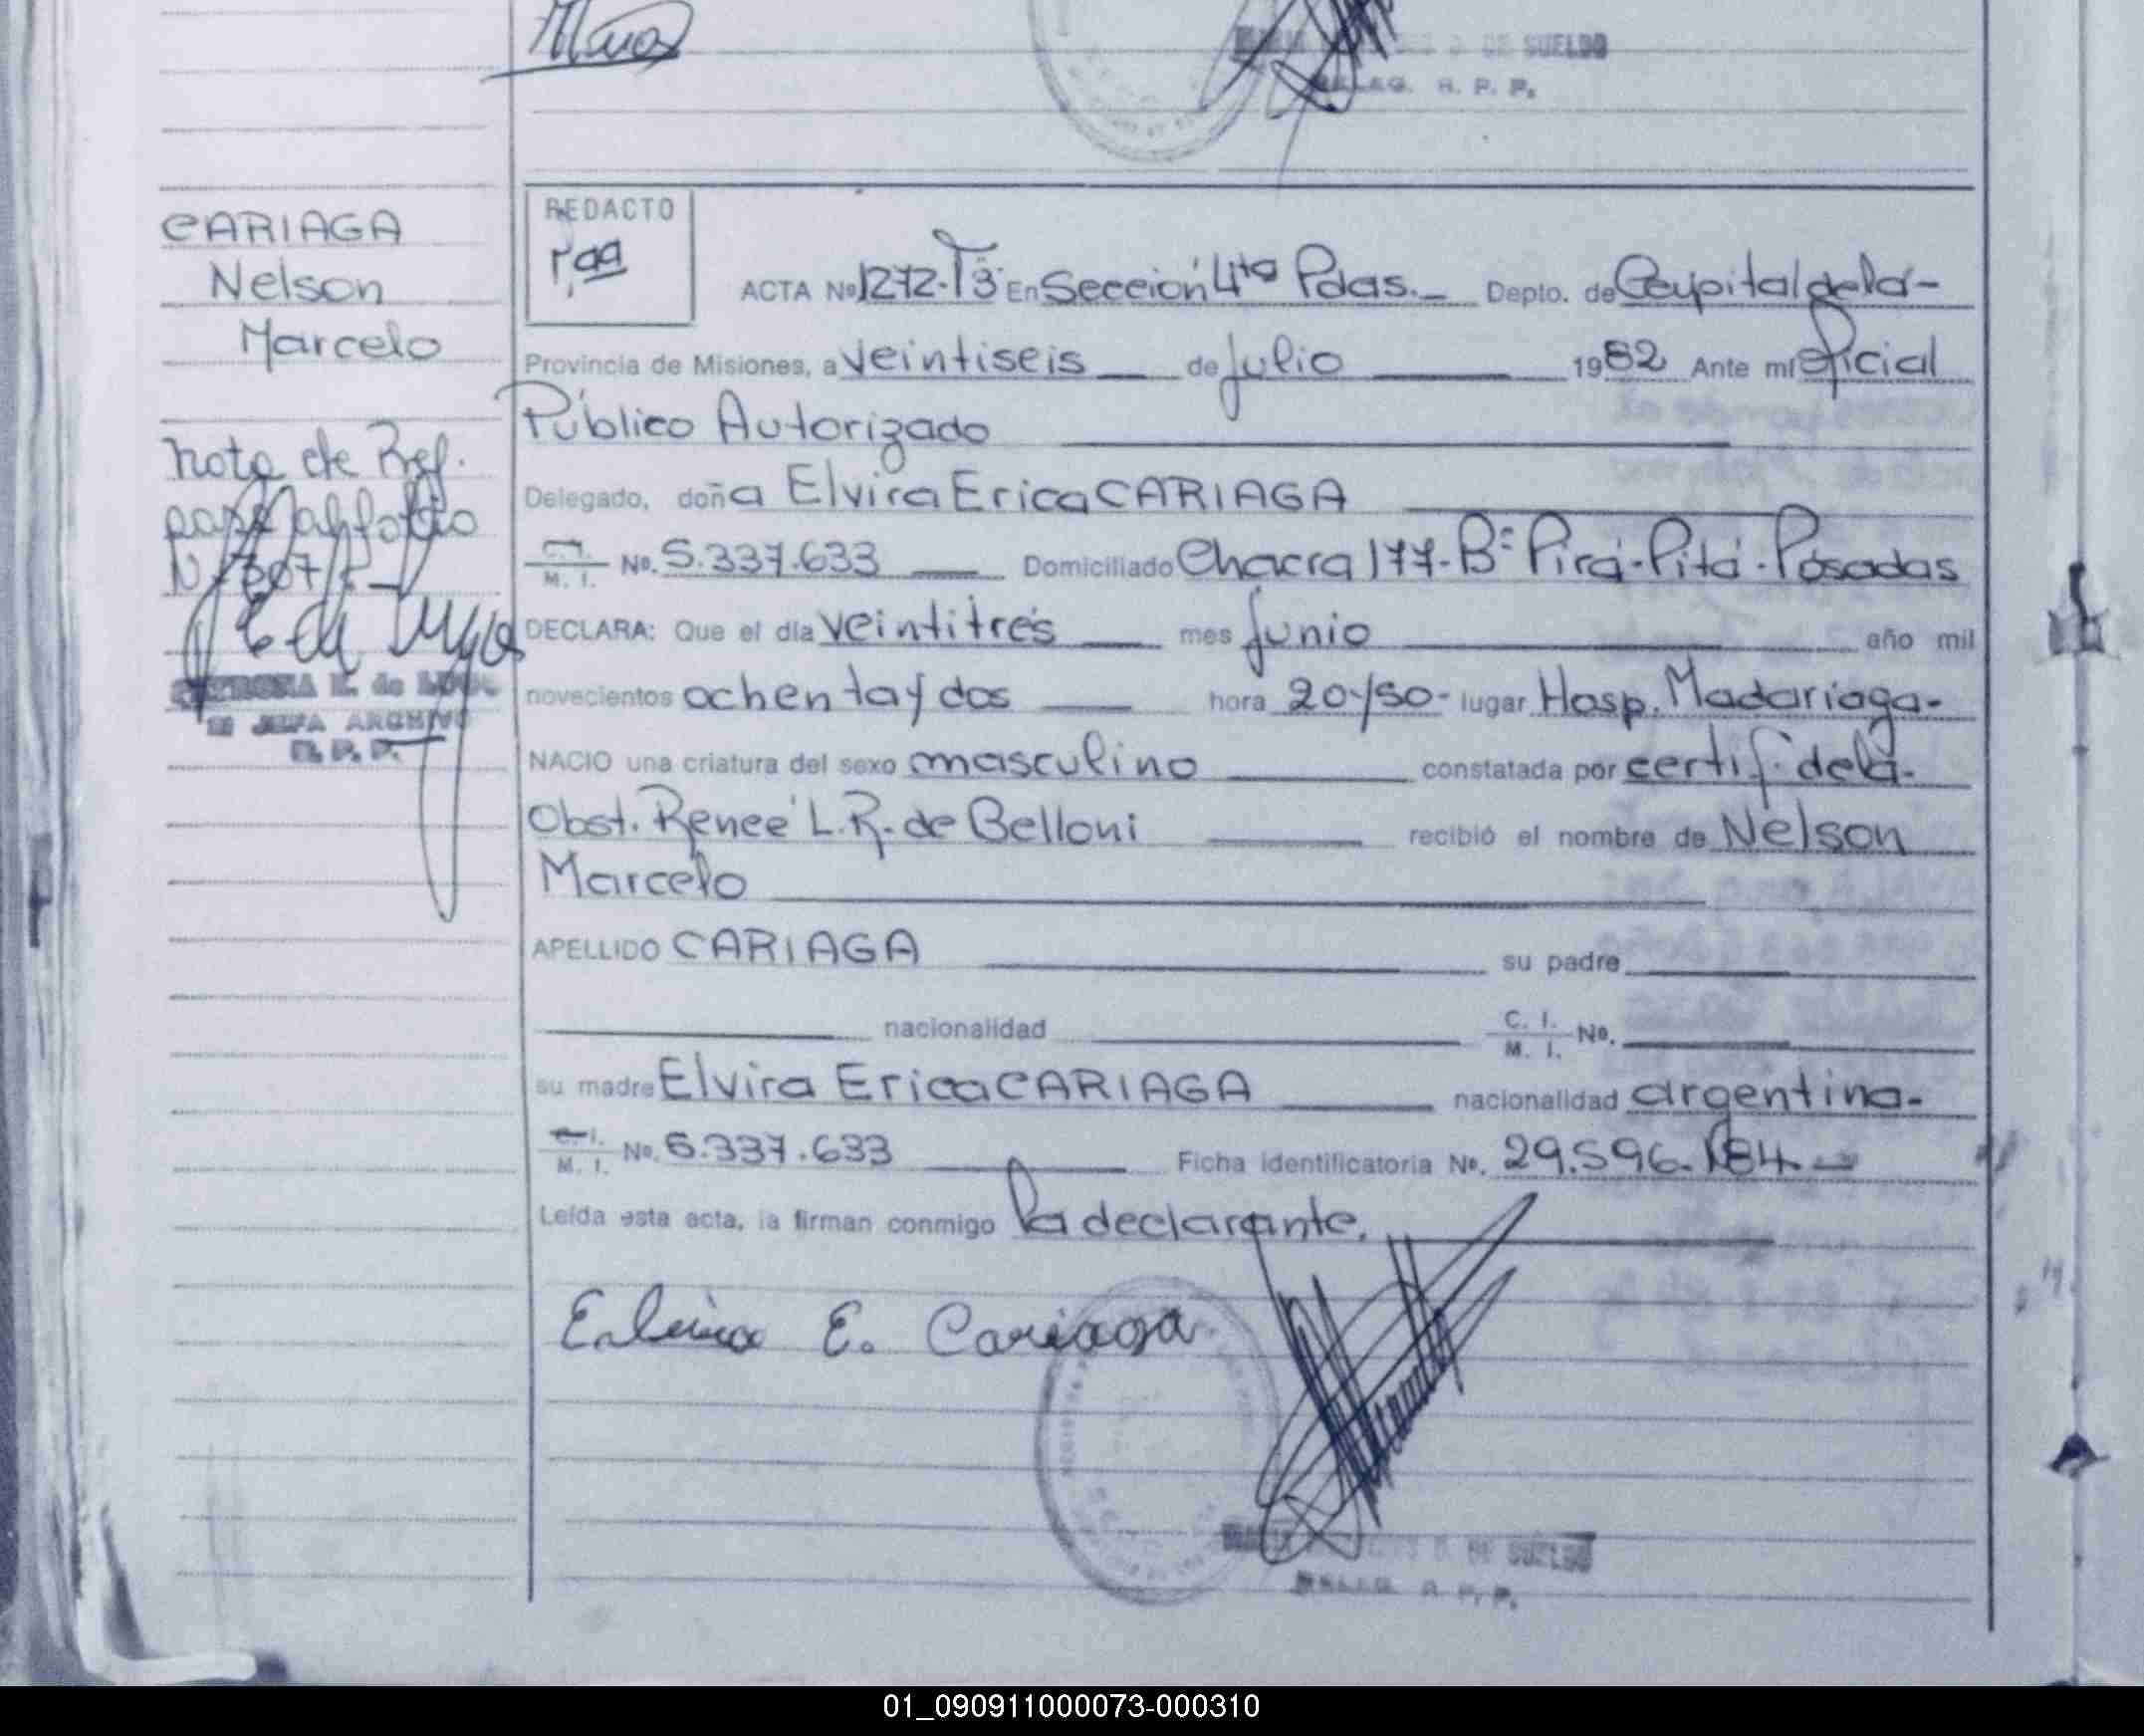 DE SUELDO
DELEG. R. P. P.
CARIAGA
Nelson
Marcelo
Nota de Ref.
pasa al folio
JEFA ARCHIVO
R. P. P.
REDACTO
ACTA Nº 1272-Tº3 En Sección 4ta Pdas. Depto. de Capital de la-
Provincia de Misiones, a veintiseis de Julio 1982 Ante mí Oficial
Público Autorizado
Delegado, doña Elvira Erica CARIAGA
C. I. M. I. Nº. 5.337.633 Domiciliado Chacra 177-Bº Pirá-Pitá-Posadas
DECLARA: Que el día veintitrés mes Junio año mil
novecientos ochenta y dos hora 20/50- lugar Hosp. Madariaga-
NACIO una criatura del sexo masculino constatada por certif. de la-
Obst. Reneé L.R. de Belloni recibió el nombre de Nelson
Marcelo
APELLIDO CARIAGA su padre
nacionalidad C. I. M. I. Nº.
su madre Elvira Erica CARIAGA nacionalidad argentina-
C. I. M. I. Nº. 5.337.633 Ficha identificatoria Nº. 29.596.184-
Leída esta acta, la firman conmigo la declarante.
Elvira E. Cariaga
DE SUELDO
DELEG. R. P. P.
01_090911000073-000310